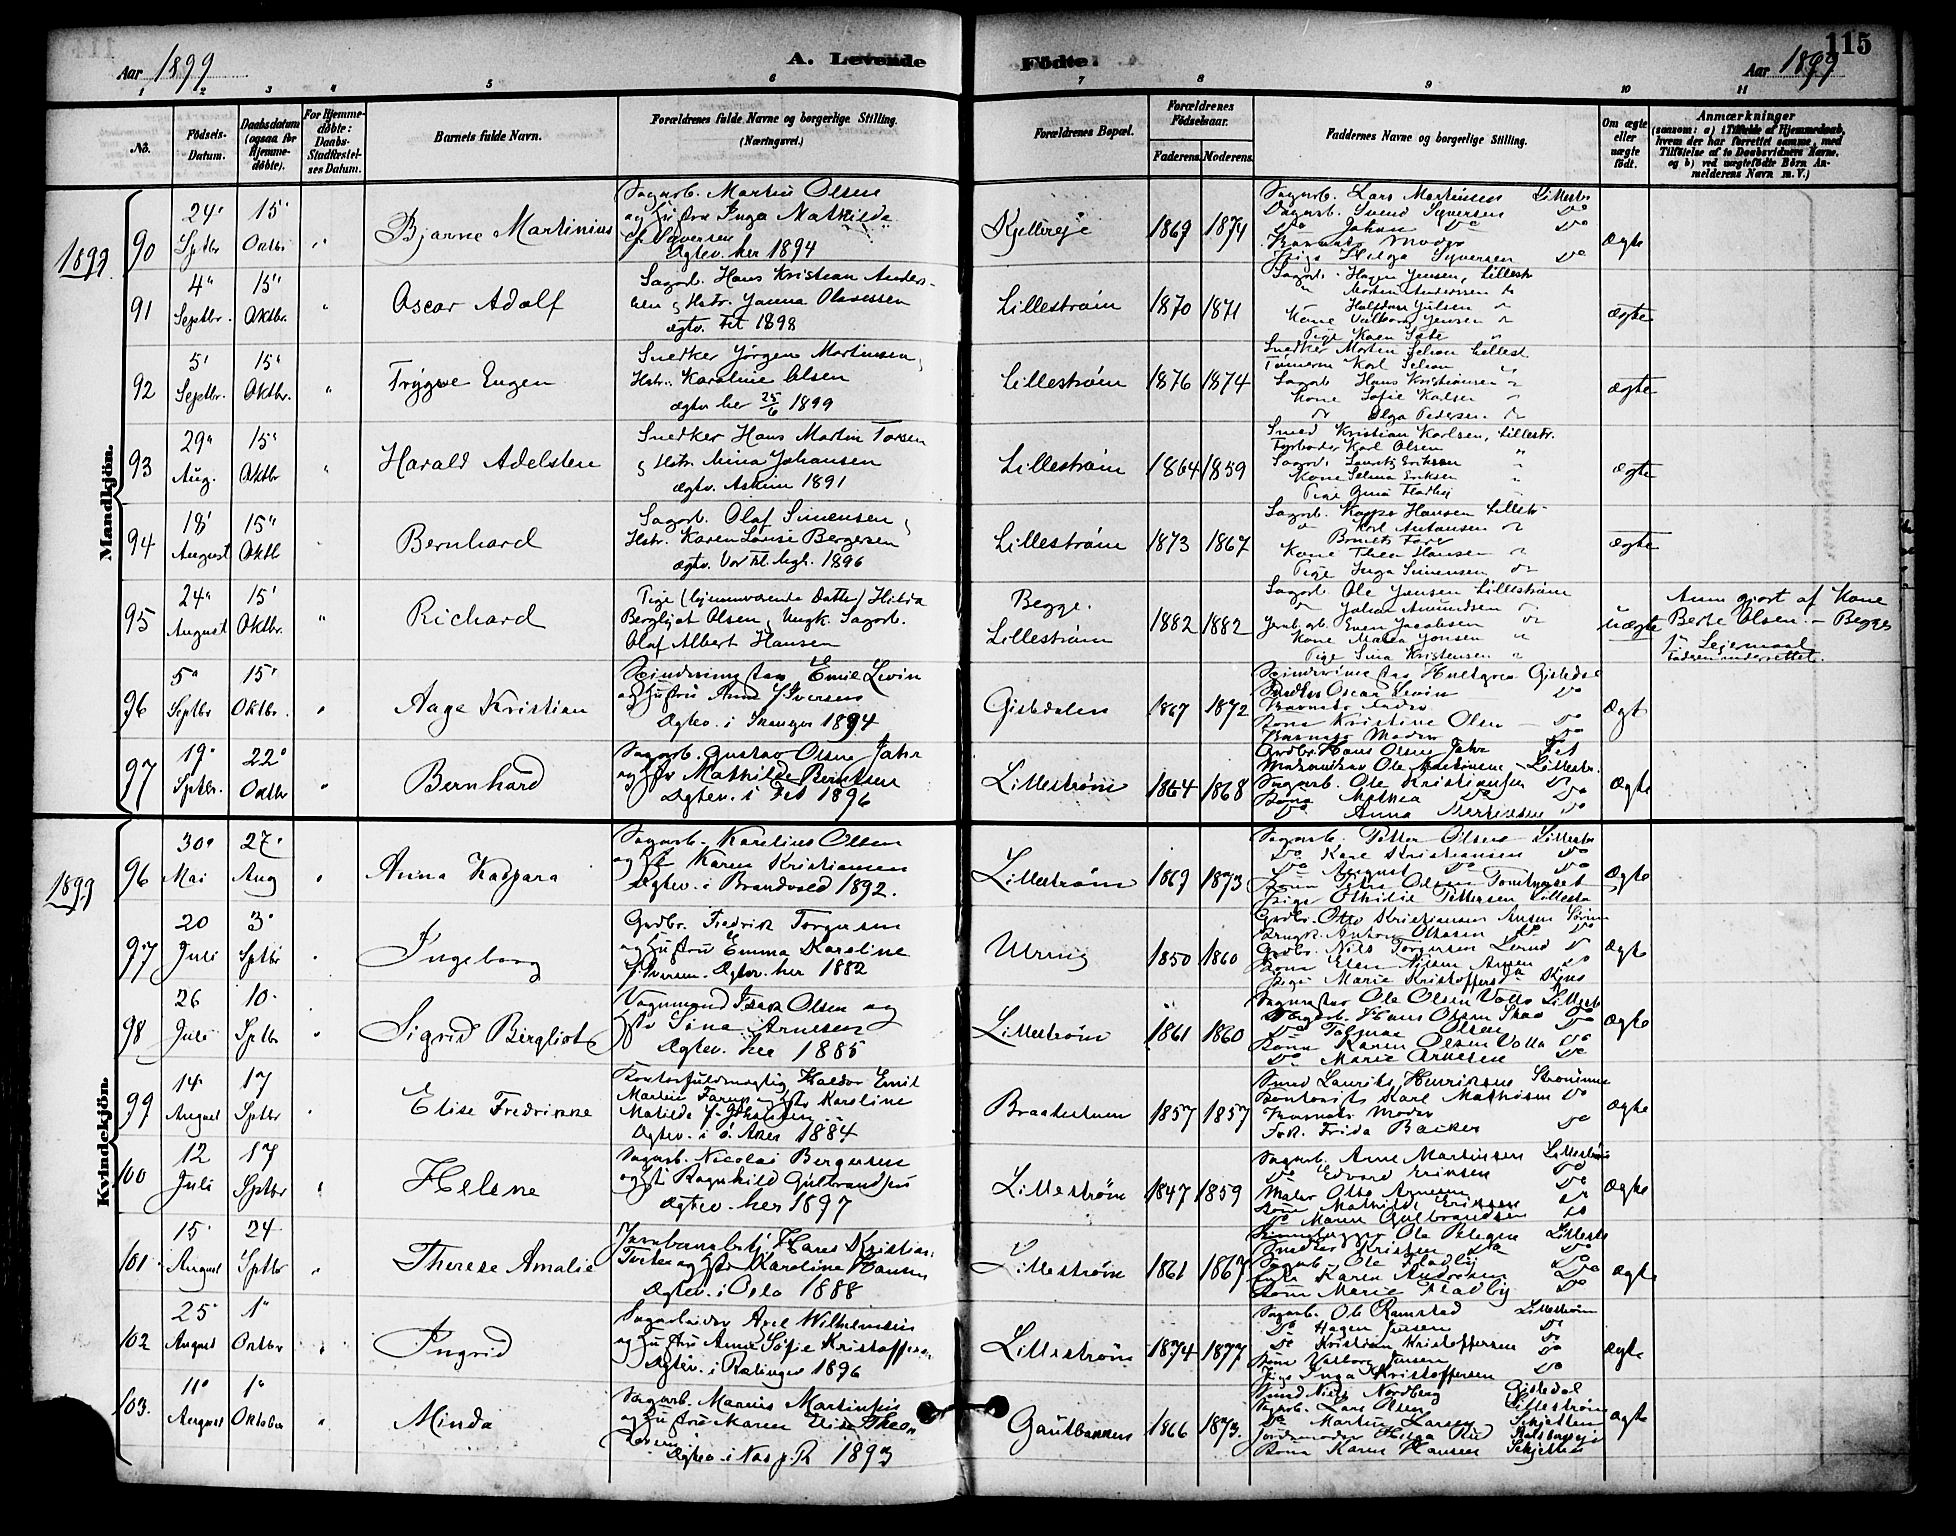 Aar 1899
A. Levende
Födte.
115
Aar 1899
1 2 3 4 5 6 7 8 9 10 11
No.
Födsels-Datum.
Daabsdatum (ogsaa for Hjemme-døbte).
For Hjemme-døbte: Daabs-Stadfæstel-ses Datum.
Barnets fulde Navn.
Forældrenes fulde Navne og borgerlige Stilling. (Næringsvei.)
Forældrenes Bopæl.
Forældrenes Fødselsaar.
Faderens. Moderens.
Faddernes Navne og borgerlige Stilling.
Om ægte eller uægte født.
Anmærkninger
(saasom: a) i Tilfælde af Hjemmedaab, hvem der har forrettet samme, med Tilføielse af to Daabsvidners Navne, og b) ved uægtefødte Børn Anmelderens Navn m. V.)
Mandkjön.
1899
90
24 Septbr
15 Oktbr
Bjarne Martinius
Sagarb. Martin Olsen
og Hustru Inga Mathilde
Syversen
Ægtev. her 1894
Kjelleveje
1869 1874
Sagarb. Lars Martinsen Lillestr
Dagarb. Svend Syversen do
do Johan do do
Barnets Moder
Pige Helga Syversen do
Ægte
91
4 Septbr.
15 Oktbr.
Oscar Adolf
Sagarb. Hans Kristian Anders-
sen, Hstr. Janna Olavessen
ægtv. Fet 1898
Lillestrøm
1870 1871
Sagarb. Hagen Jensen, Lillestr
Morten Anderssen
Halfdan Julsen
Kone Valborg Jensen
Pige Karen Sæbe
ægte
92
5 Septbr.
15 Oktbr.
Trygve Eugen
Snedker Jörgen Martinsen,
Hstr. Karoline Olsen
Ægtv her 25/6 1899
Lillestrøm
1876 1874
Snedker Morten Lillestr
Karl
Sagarb Hans Kristiansen
Kone Sofie Karlsen
do Olga Pedersen
ægte
93
29 Aug.
15 Oktbr
Harald Adelsten
Snedker Hans Martin
Hstr. Mina Johansen
Ægtv. Askim 1891
Lillestrøm
1864 1859
Smed Kristian Karlsen, Lillestr.
Fyrböder Karl Olsen
Sagarb. Lauritz Eriksen
Kone Selma Eriksen
Pige Gina Fladby
ægte
94
18 August
15 Oktb
Bernhard
Sagarb. Olaf Simensen,
Hstr. Karen Louise Bergersen
ægtv. Vor Fr. Mgh. 1896
Lillestrøm
1873 1867
Sagarb. Kasper Hansen Lillestr
Karl Antonsen
Barnets Fader
Kone Thea Hansen
Pige Inga Simensen
ægte
95
24 August
15 Oktbr.
Richard
Pige (hjemmeværende Datter) Hilda
Bergljot Olsen, Ungk. Sagarb.
Olaf Albert Hansen
Begge.
Lillestrøm
1882 1882
Sagarb. Ole Jensen Lillestrøm
Johan Amundsen
Jernb.arb. Even Jacobsen
Kone Maria Jonsen
Pige Sina Kristensen
uægte
Anm gjort af Kone
Berte Olsen. – Begges
1ste Leiermaal
Faderen underrettet.
96
5 Septbr
15 Oktbr.
Aage Kristian
Emil Levin
og Hustru Anna Iversen
Ægtev. i 1894
Gisledalen
1867 1872
Hultgren Gisledal
Snedker Oscar Levin do
Barnets Fader
Kone Kristine Olsen do
Barnets Moder
Ægt
97
19 Sptbr.
22 Oktbr
Bernhard
Sagarb. Gustav Olsen Jahr
og Hstr Mathilde Berntsen
Ægtev. i Fet 1896
Lillestrøm
1864 1868
Grdbr. Hans Olsen Jahr Fet
Ole Lillestr.
Sagarb. Ole Kristiansen do
Kone Mathea do do
do Anna Berntsen do
Ægte
Kvindekjön.
1899
96
30 Mai
27 Aug
Anna Kaspara
Sagarb. Karelius Olsen
og Hst Karen Kristiansen
Ægtev. i Brandvold 1892.
Lillestrøm
1869 1873
Sagarb. Petter Olsen Lillestr
do Karl Kristiansen do
do August do do
Kone Olsen
Pige Othilie Pettersen Lillestr
Ægte
97
20 Juli
3 Sptbr
Ingeborg
Grdbr. Fredrik Torgersen
og Hustru Emma Karoline
Iversen. Ægtev. her 1882
1850 1860
Grdbr. Otto Kristiansen
Anton do
Grdbr. Nils Torgersen
Kone Elen Nilsen
Pige Marie Kristoffersd
Ægte
98
26 Juli
10 Sptbr
Sigrid Bergliot
Vognmand Isak Olsen og
Hstr Sina Arnesen
Ægtev. her 1885
Lillestrøm
1861 1860
Ole Olsen Volla Lillestr
Sagarb. Hans Olsen do
do Olsen
Kone Karen Olsen Volla do
do Marie Arnesen do
Ægte
99
14 August
17 Sptbr
Elise Fredrikke
Kontorfuldmægtig Haldor Emil
Martin og Hstr Karoline
Matilde f. Johansen.
Ægtev. i Ø. Aker 1884
1857 1857
Smed Laurits Henriksen Strømmen
Kontorist Karl Mathisen do
Barnets Moder
Frk. Frida Backer do
Ægte
100
12 Juli
17 Sptbr
Helene
Sagarb. Nicolai Bergersen
og Hst Ragnhild Gulbrandsen
Ægtev. her 1897
Lillestrøm
1847 1859
Sagarb. Arne Martinsen Lillestrøm
do Edvard Eriksen do
Maler Otto Arnesen do
Kone Mathilde Eriksen do
do Maren Gulbrandsen do
Ægte
101
15 August
24 Sptbr
Therese Amalie
Jernbanebetj. Hans Kristian
og Hstr Karoline Hansen
Ægtev. i Oslo 1888
Lillestrøm
1861 1867
Ole Lillestr
Snedker Kristen do
Sagarb. Ole Fladby do
Karen Andersen do
Kone Marie Fladby do
Ægte
102
25 August
1 Oktbr
Ingrid
Sagarbeider Axel Wilhelmsen
og Hustru Anne Sofie Kristoffersen
Ægtev. i Rælingen 1896
Lillestrøm
1874 1877
Sagarb. Ole Ramstad Lillestrøm
do Hagen Jensen do
do Kristian Kristoffersen do
Kone Valborg Jensen do
Pige Inga Kristoffersen
ægte
103.
11 August
1 Oktober
Minda
Sagarb. Marius Martinsen
og Hustru Maren Elise Theo-
Ægtev. i Næs p. R 1893
Gautbakken
1866 1873.
Smed Niels Nordberg Gisledal
Sagarb. Lars Olsen Lillestrøm
do Martin Larsen Skjetten
Jordemoder Helga
Kone Karen Hansen Skjetten
ægte